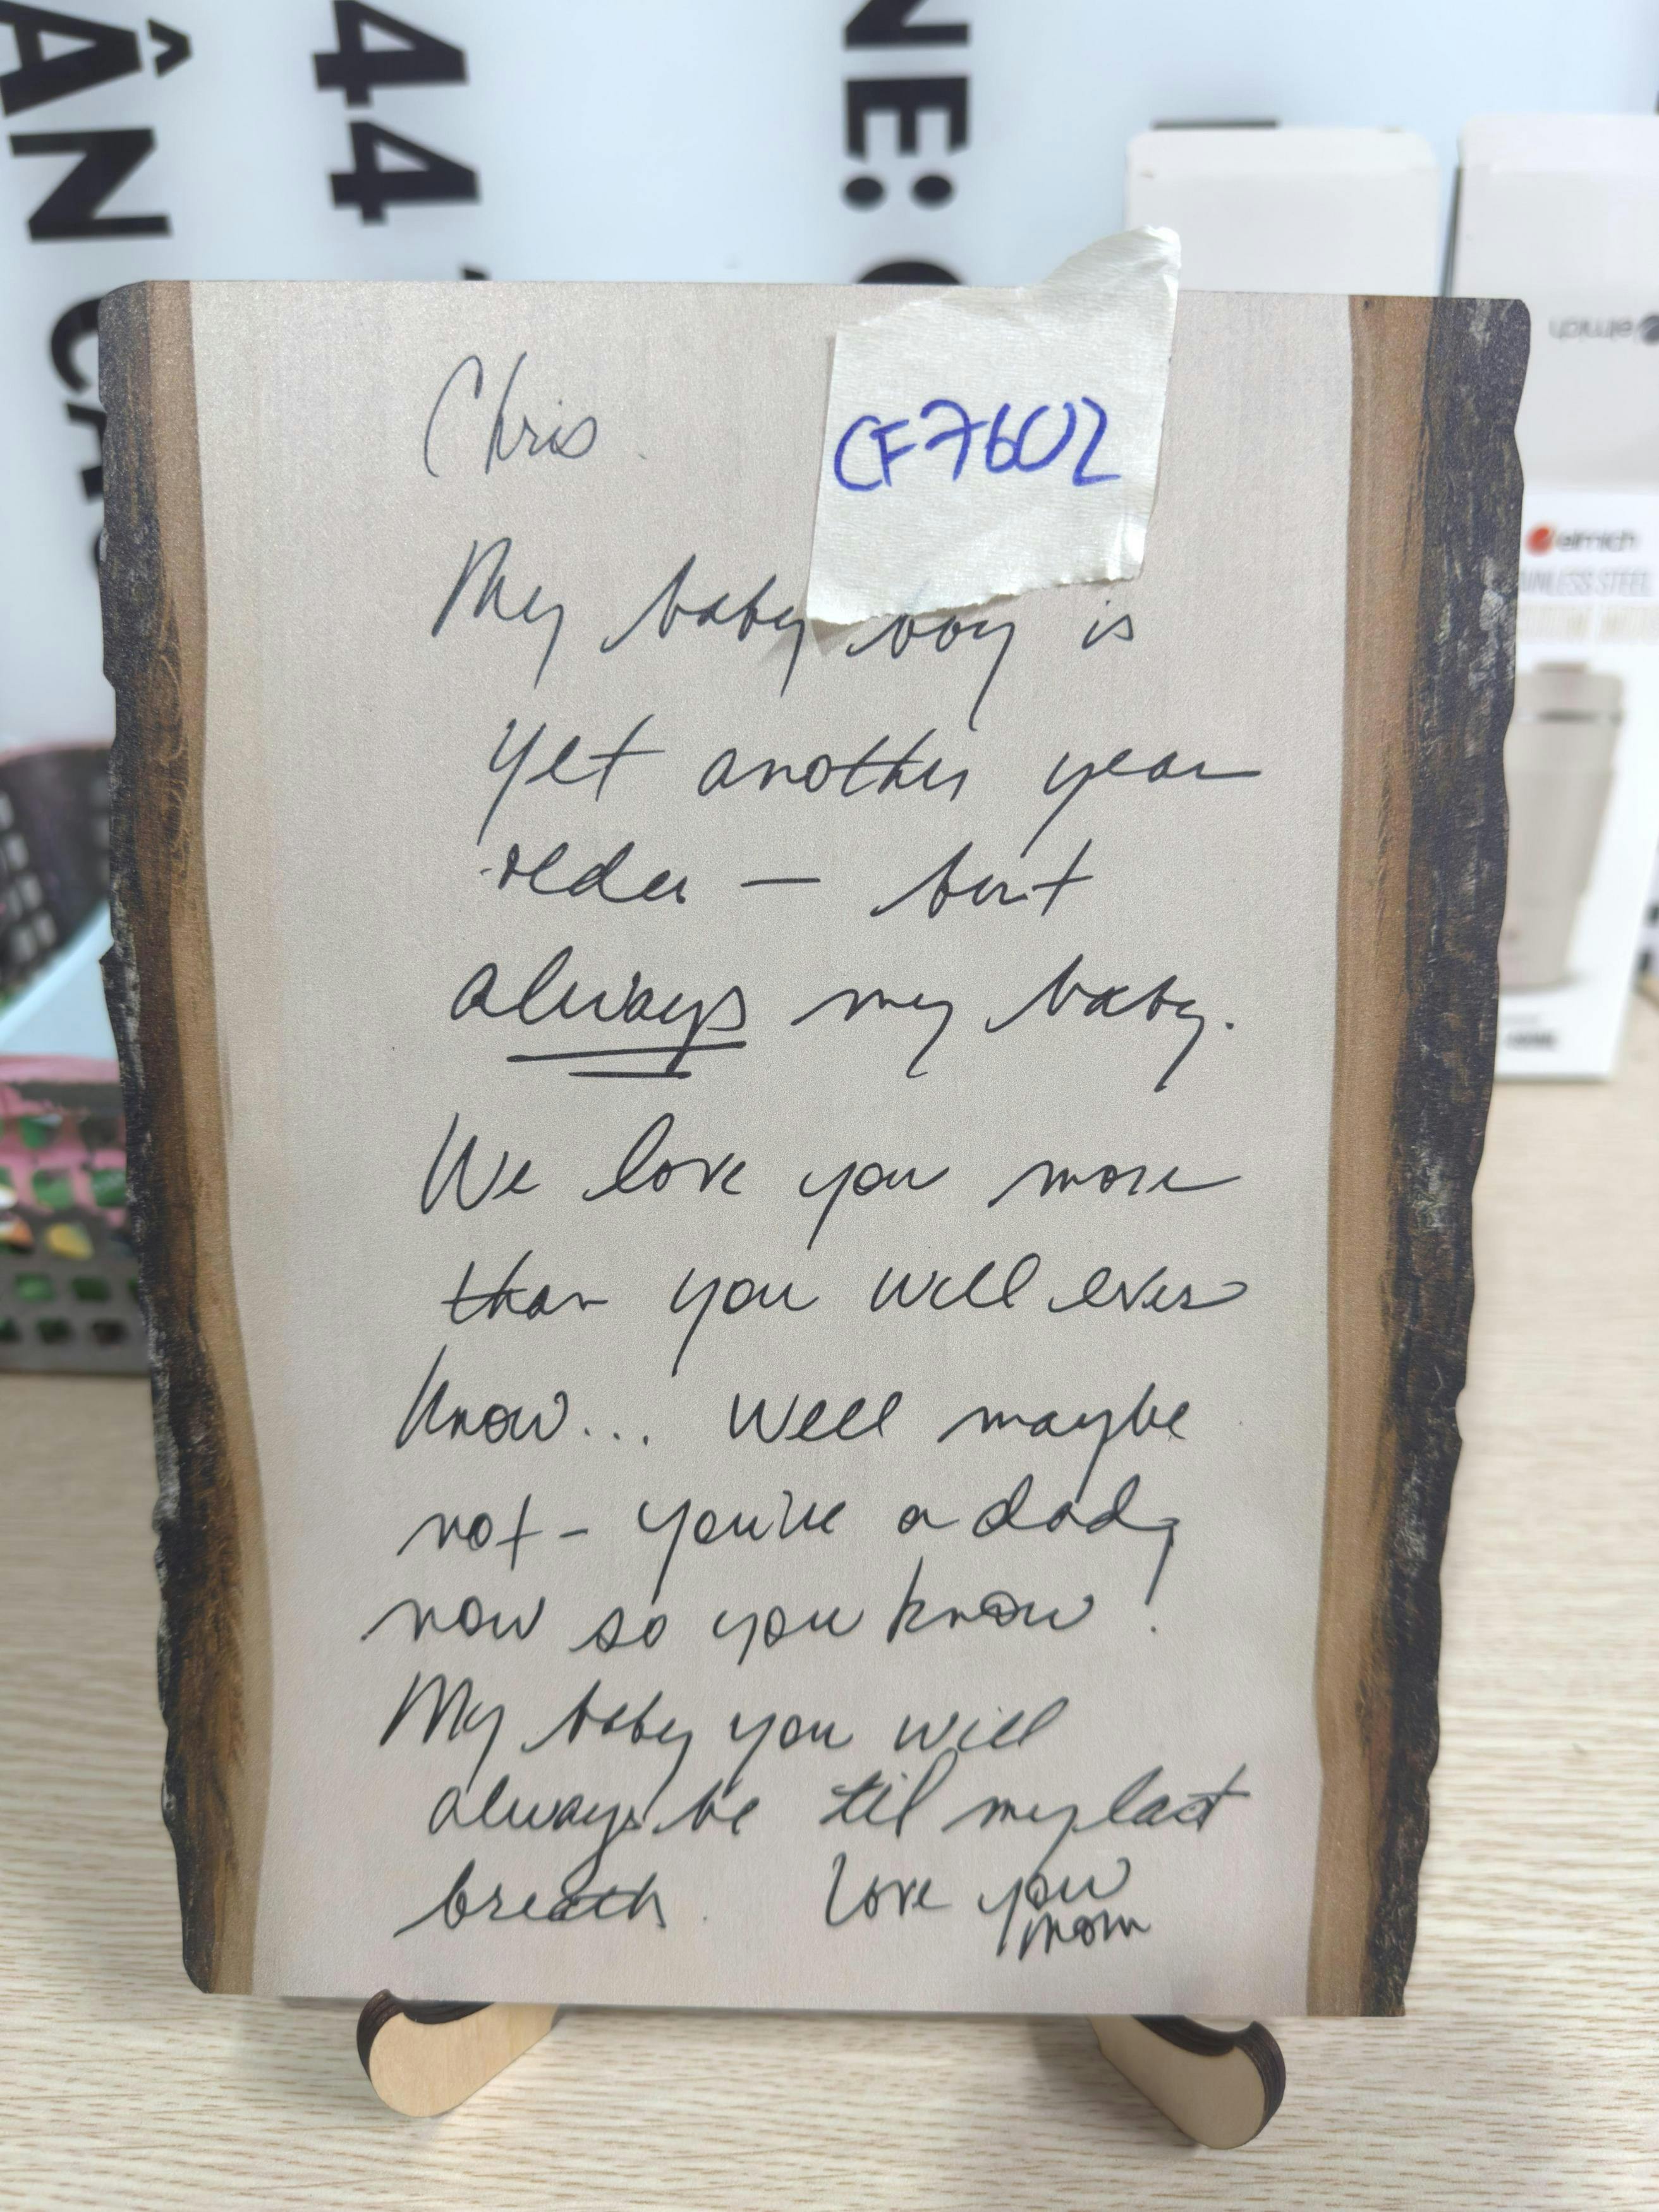 ÂN CAO
44
NE: 0
elmich
CF7602
Chris.
My baby boy is
yet another year
older — but
always my baby.
We love you more
than you will ever
know... Well maybe
not - you're a dady
now so you know!
My baby you will
always be til my last
breath. Love you
mom
elmich
STAINLESS STEEL